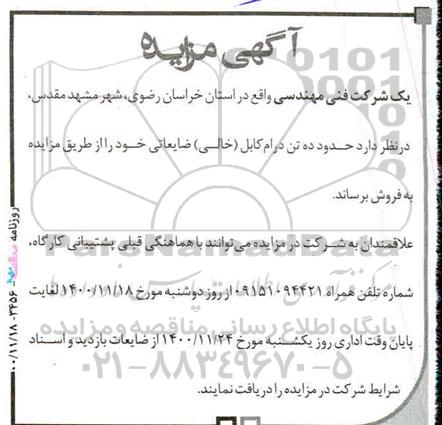 آگهی مزایده
یک شرکت فنی مهندسی واقع در استان خراسان رضوی، شهر مشهد مقدس،
در نظر دارد حدود ده تن درام کابل (خالی) ضایعاتی خود را از طریق مزایده
به فروش برساند.
علاقمندان به شرکت در مزایده می توانند با هماهنگی قبلی پشتیبانی کارگاه،
شماره تلفن همراه ۰۹۱۵۱۰۹۴۴۲۱ از روز دوشنبه مورخ ۱۴۰۰/۱۱/۱۸ لغایت
پایان وقت اداری روز یکشنبه مورخ ۱۴۰۰/۱۱/۲۴ از ضایعات بازدید و اسناد
شرایط شرکت در مزایده را دریافت نمایند.
ParsNamadData
پایگاه اطلاع رسانی مناقصه و مزایده
۰۲۱-۸۸۳۴۹۶۷۰-۵
روزنامه ۰۰/۱۱/۱۸ - ۳۴۵۶